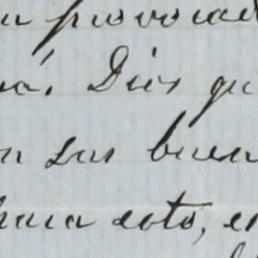 provocad
Dios qu
sus buen
para esto, en